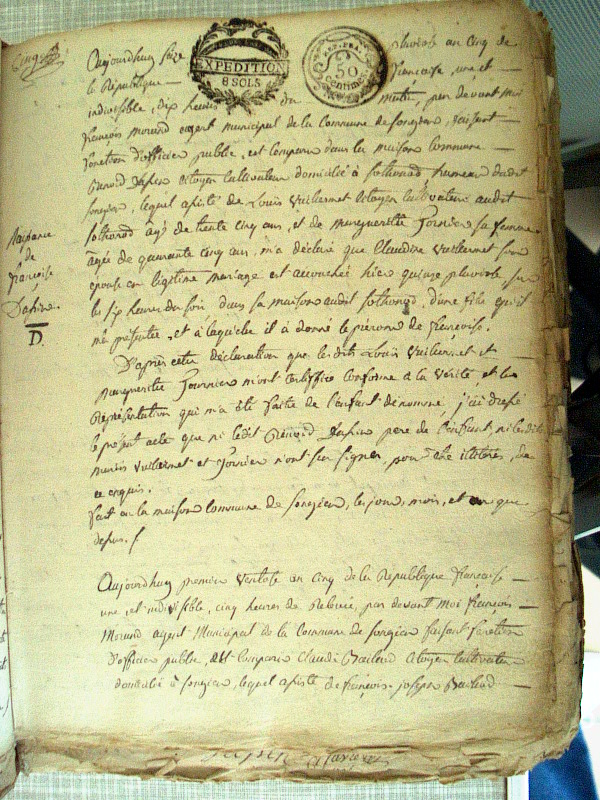 Cinq
Aujourdhuy seize pluviose an cinq de
EXPEDITION
8 SOLS
REP. FRA.
50
Centimes
la République française, une et
indivisible, dix heures du matin, par devant moi
françois morand agent municipal de la Commune de songieu, faisant
fonction d'officier public, est comparu dans la maison commune
Dapin Citoyen Cultivateur domicilié à sothonod hameau dudit
songieu, lequel assisté de Louis Vuillermet Citoyen Cultivateur audit
sothonod agé de trente cinq ans, et de marguerite fornier sa femme
agée de quarante cinq ans, m'a déclaré que Claudine Vuillermet son
epouse en légitime mariage est accouchée hier quinze pluviose sur
les six heures du soir dans sa maison audit sothonod, d'une fille qu'il
m'a présentée, et à laquelle il a donné le prénom de françoise.
Naissance
de
françoise
Dapin.
D.
D'après cette déclaration que lesdits Louis Vuillermet et
marguerite Fournier m'ont certiffié conforme à la vérité, et la
représentation qui m'a été faitte de l'enfant dénommé, j'ai dressé
le présent acte que ni ledit Dapin pere de l'enfant, ni lesdits
mariés Vuillermet et Fornier n'ont su signer, pour être illiterés, de
ce enquis.
fait en la maison Commune de songieu, les jour, mois, et an que
dessus. f
Aujourdhuy premier Ventose an cinq de la République française
une et indivisible, cinq heures de relevée, par devant moi françois
Morand agent Municipal de la Commune de songieu faisant fonction
d'officier public, est Comparu Claude Baillod Citoyen Cultivateur
domicilié à songieu, lequel assisté de françois joseph Baillod